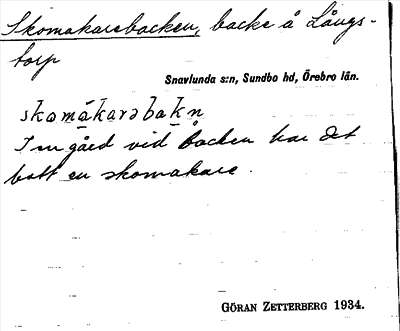 Skomakarebacken, backe å Långs-
torp
Snavlunda s:n, Sundbo hd, Örebro län.
skomákarəbakn
I en gård vid backen har det
bott en skomakare.
GÖRAN ZETTERBERG 1934.